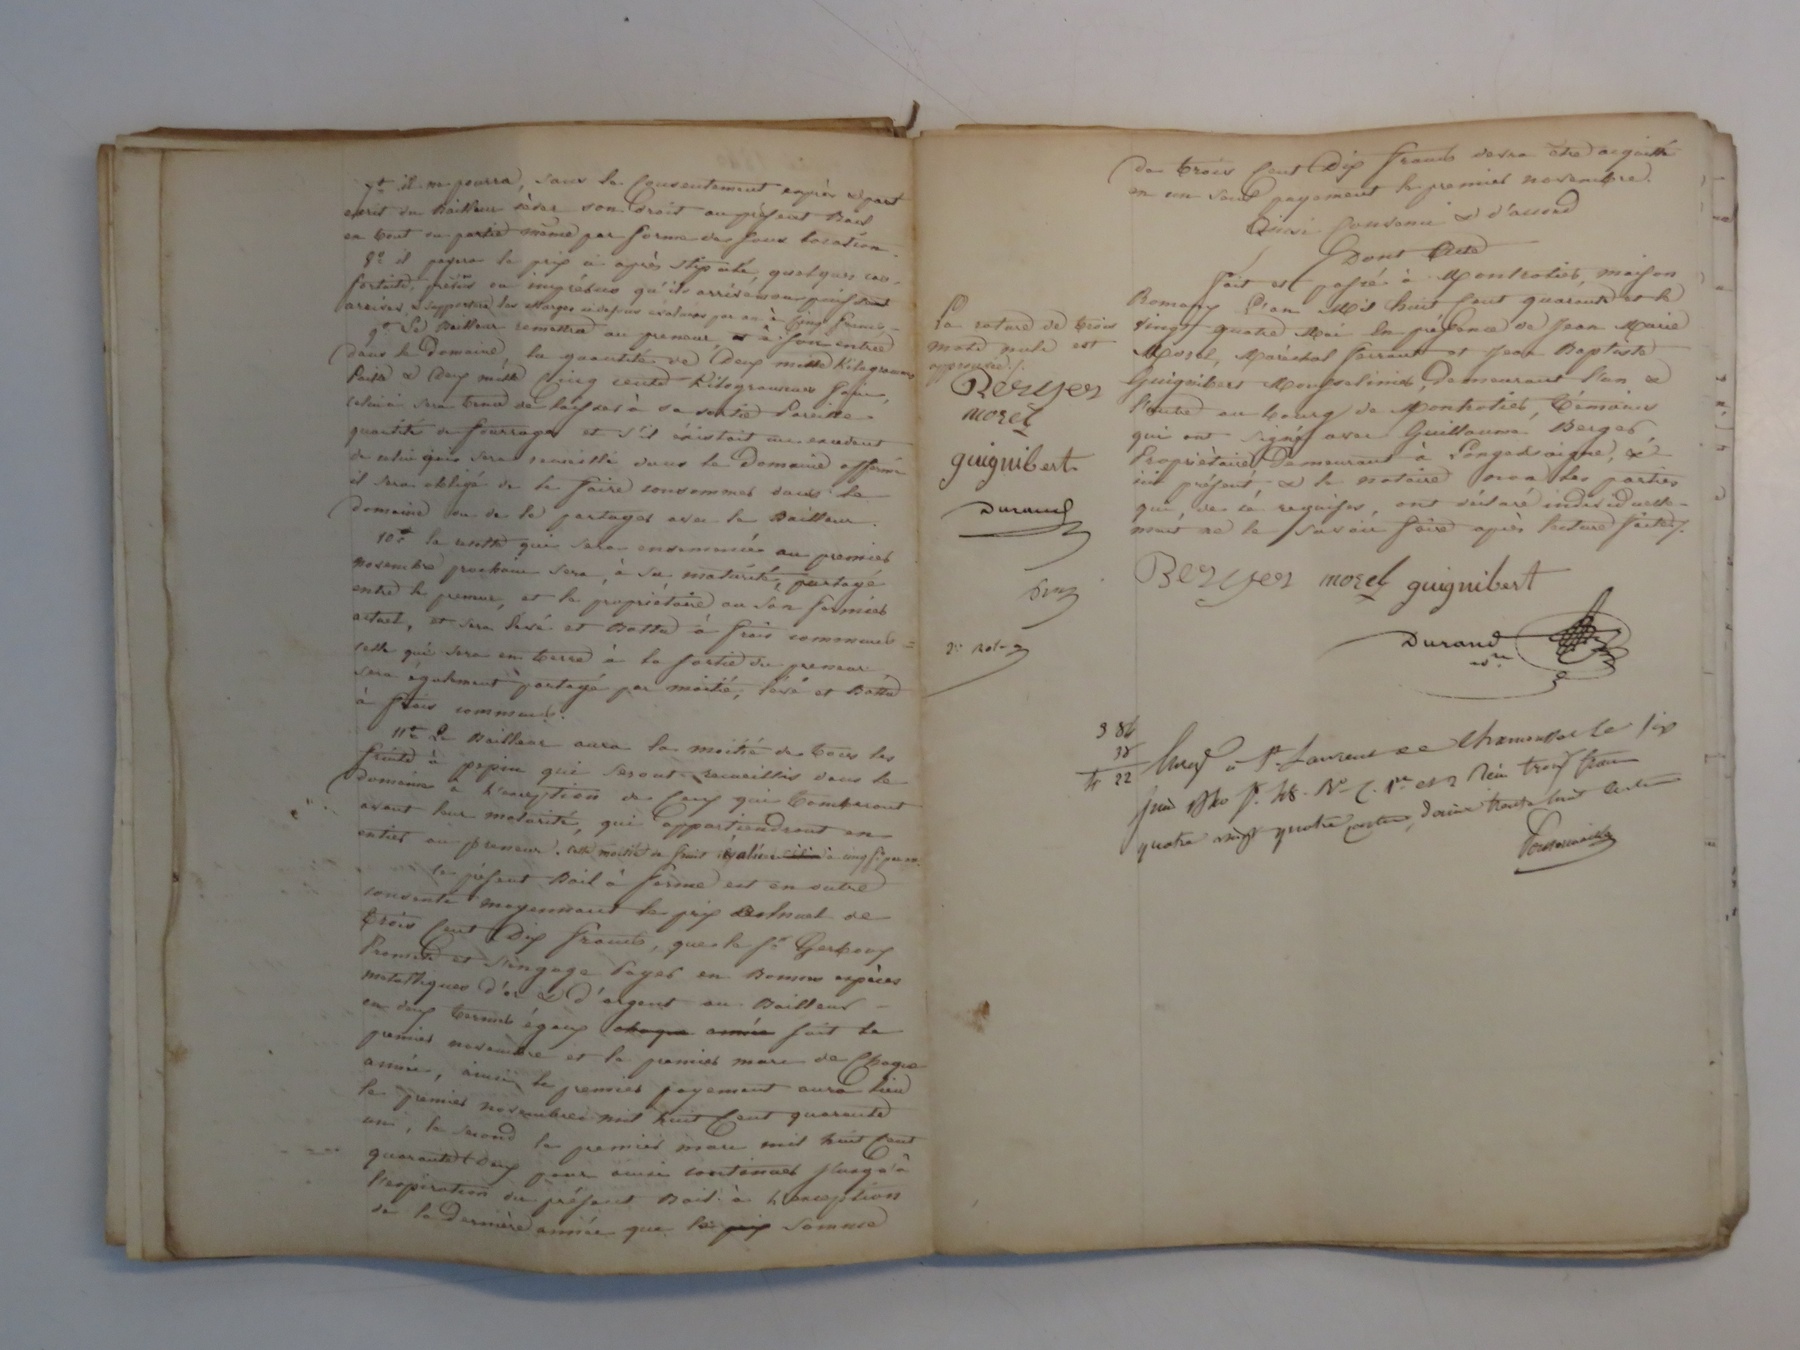 7° il ne pourra, sans le Consentement exprès & part
écrit du Bailleur céder son droit au présent Bail
en tout ou partie même par forme de sous location.
8° il payera le prix ci après stipulé, quelques cas
fortuits, prévus ou imprévus qu'ils arrivent ou puissent
arriver, & supportera les charges ci dessus évaluées par an à Cinq francs.
9° Le Bailleur remettra au preneur, à son entrée
dans le Domaine, la quantité de Deux mille Kilogrammes
Paille & Deux mille Cinq cents Kilogrammes foin,
celui-ci sera tenu de laisser à sa sortie Pareille
quantité de fourrages et s'il existait un excédent
de celui qui sera recueilli dans le Domaine affermé
il sera obligé de le faire consommer dans le
Domaine ou de le partager avec le Bailleur.
10° la récolte qui sera ensemencée au premier
novembre prochain sera, à sa maturité, partagé
entre le preneur, et le propriétaire ou son fermier
actuel, et sera levé et Battu à frais communs =
celle qui sera en terre à la sortie du preneur
sera également partagé par moitié, levé et Battu
à frais communs.
11° Le Bailleur aura la moitié de tous les
fruits à pepin qui seront recueillis dans le
Domaine à l'exception de Ceux qui tomberont
avant leur maturité, qui appartiendront en
entier au preneur. Cette moitié de fruit évaluée à cinq f. par an.
Le présent Bail à ferme est en outre
consenti moyennant le prix annuel de
trois Cent Dix francs, que le Sr
Promet et s'engage Payer en Bonnes espèces
métalliques d'or & d'argent au Bailleur
en deux termes égaux chaque année soit le
premier novembre et le premier mars de Chaque
année, ainsi le premier payement aura lieu
le premier novembre mil huit Cent quarante
un, le second le premier mars mil huit Cent
quarante Deux pour ainsi continuer jusqu'à
l'expiration du présent Bail à l'exception
de la Dernière année que le prix Somme
de trois Cent Dix francs devra être acquitté
en un seul payement le premier novembre.
Ainsi Convenu & d'accord
Dont Acte
Fait et passé à Montrotier, maison
Romany L'an Mil huit Cent quarante et le
vingt quatre Mai En présence de Jean Marie
Morel, Maréchal ferrant et Jean Baptiste
Guignibert Mousselinier, Demeurant l'un &
l'autre au Bourg de Montrotier, témoins
qui ont signé avec Guillaume Berger,
Propriétaire Demeurant à Longessaigne, &
ici présent, & le notaire non les parties
qui, de ce requises, ont déclaré individuelle-
ment ne le Savoir faire après lecture faite.
La rature de trois
mots nuls est
approuvée.
Berger
morel
guignibert
Durand
2e Rôle
Berger morel guignibert
Durand
nre
3 84
38
4 22
Enreg à St Laurent de Chamousset le six
Juin 1840 f° 48 R° C. 1re et 2 Reçu trois francs
quatre vingt quatre centimes, dixième trente huit centimes